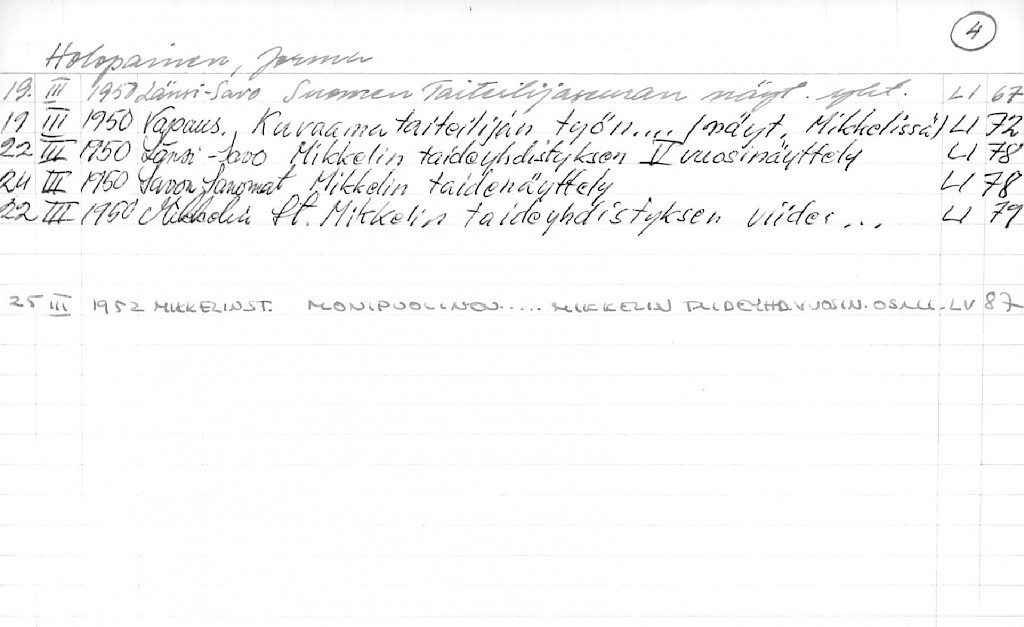 4
Holopainen, Jorma
19. III 1950 Länsi-Savo Suomen Taiteilijaseuran näyt. yht. LI 67
19 III 1950 Vapaus. Kuvaama taiteilijan työn.... (näyt. Mikkelissä) LI 72
22 III 1950 Länsi-Savo Mikkelin taideyhdistyksen V vuosinäyttely LI 78
24 III 1950 Savon Sanomat Mikkelin taidenäyttely LI 78
22 III 1950 Mikkelin St. Mikkelin taideyhdistyksen viides ... LI 79
25 III 1952 MIKKELIN ST. MONIPUOLINEN..... MIKKELIN TAIDEYHD. VUOSIN. LV 87